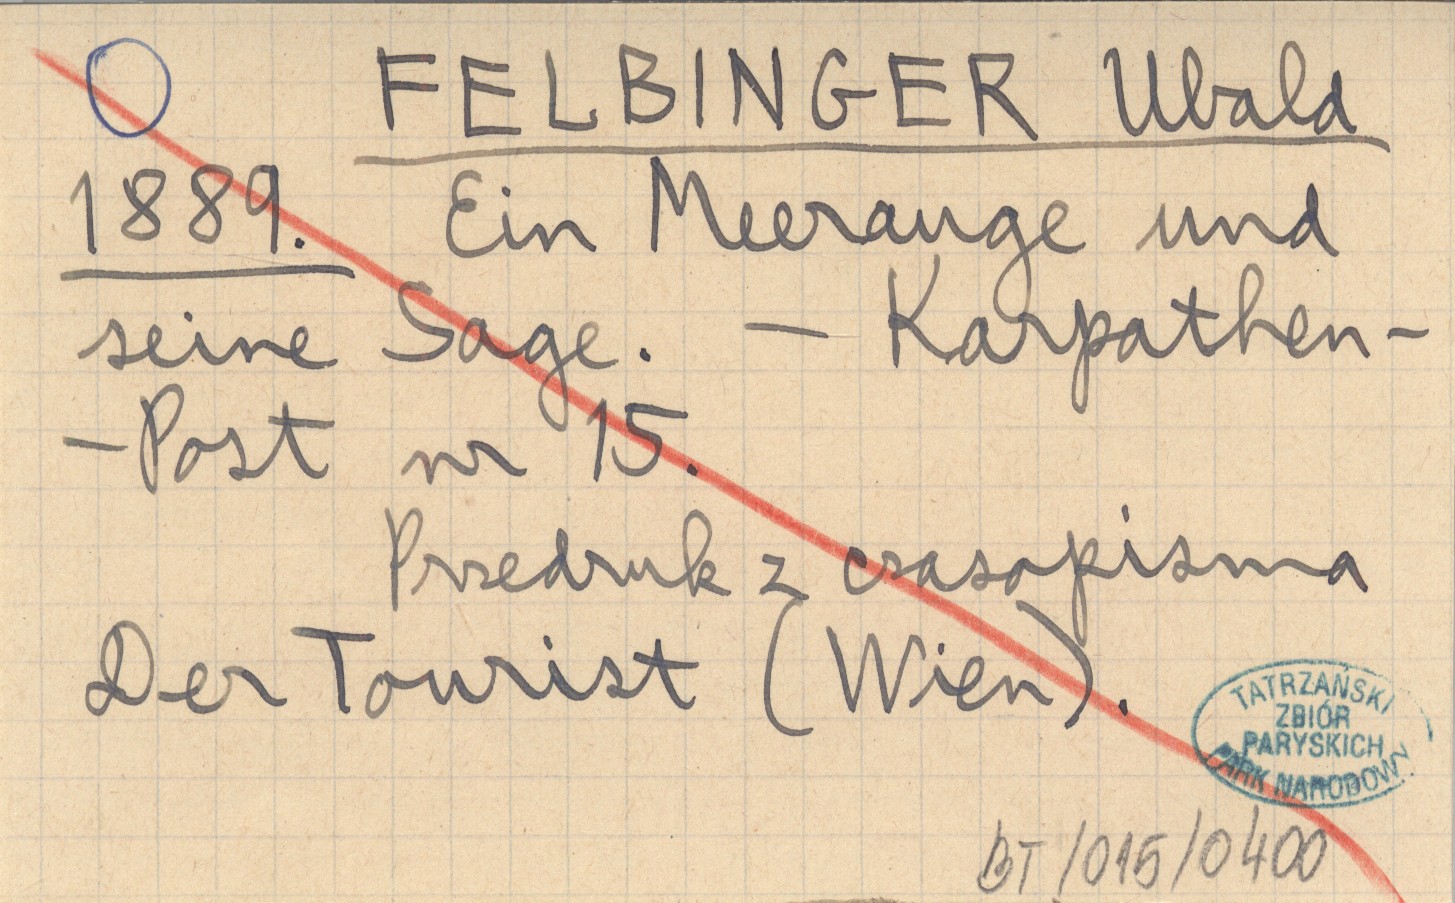 FELBINGER Ubald
1889. Ein Meerauge und
seine Sage. — Karpathen-
-Post nr 15.
Przedruk z czasopisma
Der Tourist (Wien).
TATRZAŃSKI
ZBIÓR
PARYSKICH
PARK NARODOWY
BT/015/0400